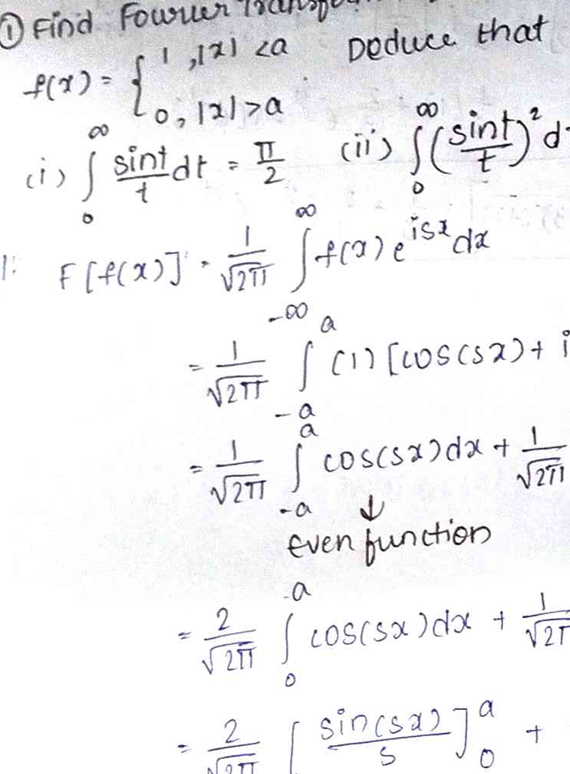 ① Find Fourier Transfo
f(x) = { 1 , |x| < a Deduce that
0 , |x| > a .
(i) ∫₀^∞ sint/t dt = π/2 (ii) ∫₀^∞ (sint/t)² d
1: F[f(x)] = 1/√2π ∫_{-∞}^{∞} f(x) e^{isx} dx
= 1/√2π ∫_{-a}^{a} (1) [cos(sx) + i
= 1/√2π ∫_{-a}^{a} cos(sx) dx + 1/√2π
↓
Even function
= 2/√2π ∫₀^a cos(sx) dx + 1/√2π
= 2/√2π [ sin(sx)/s ]₀^a +